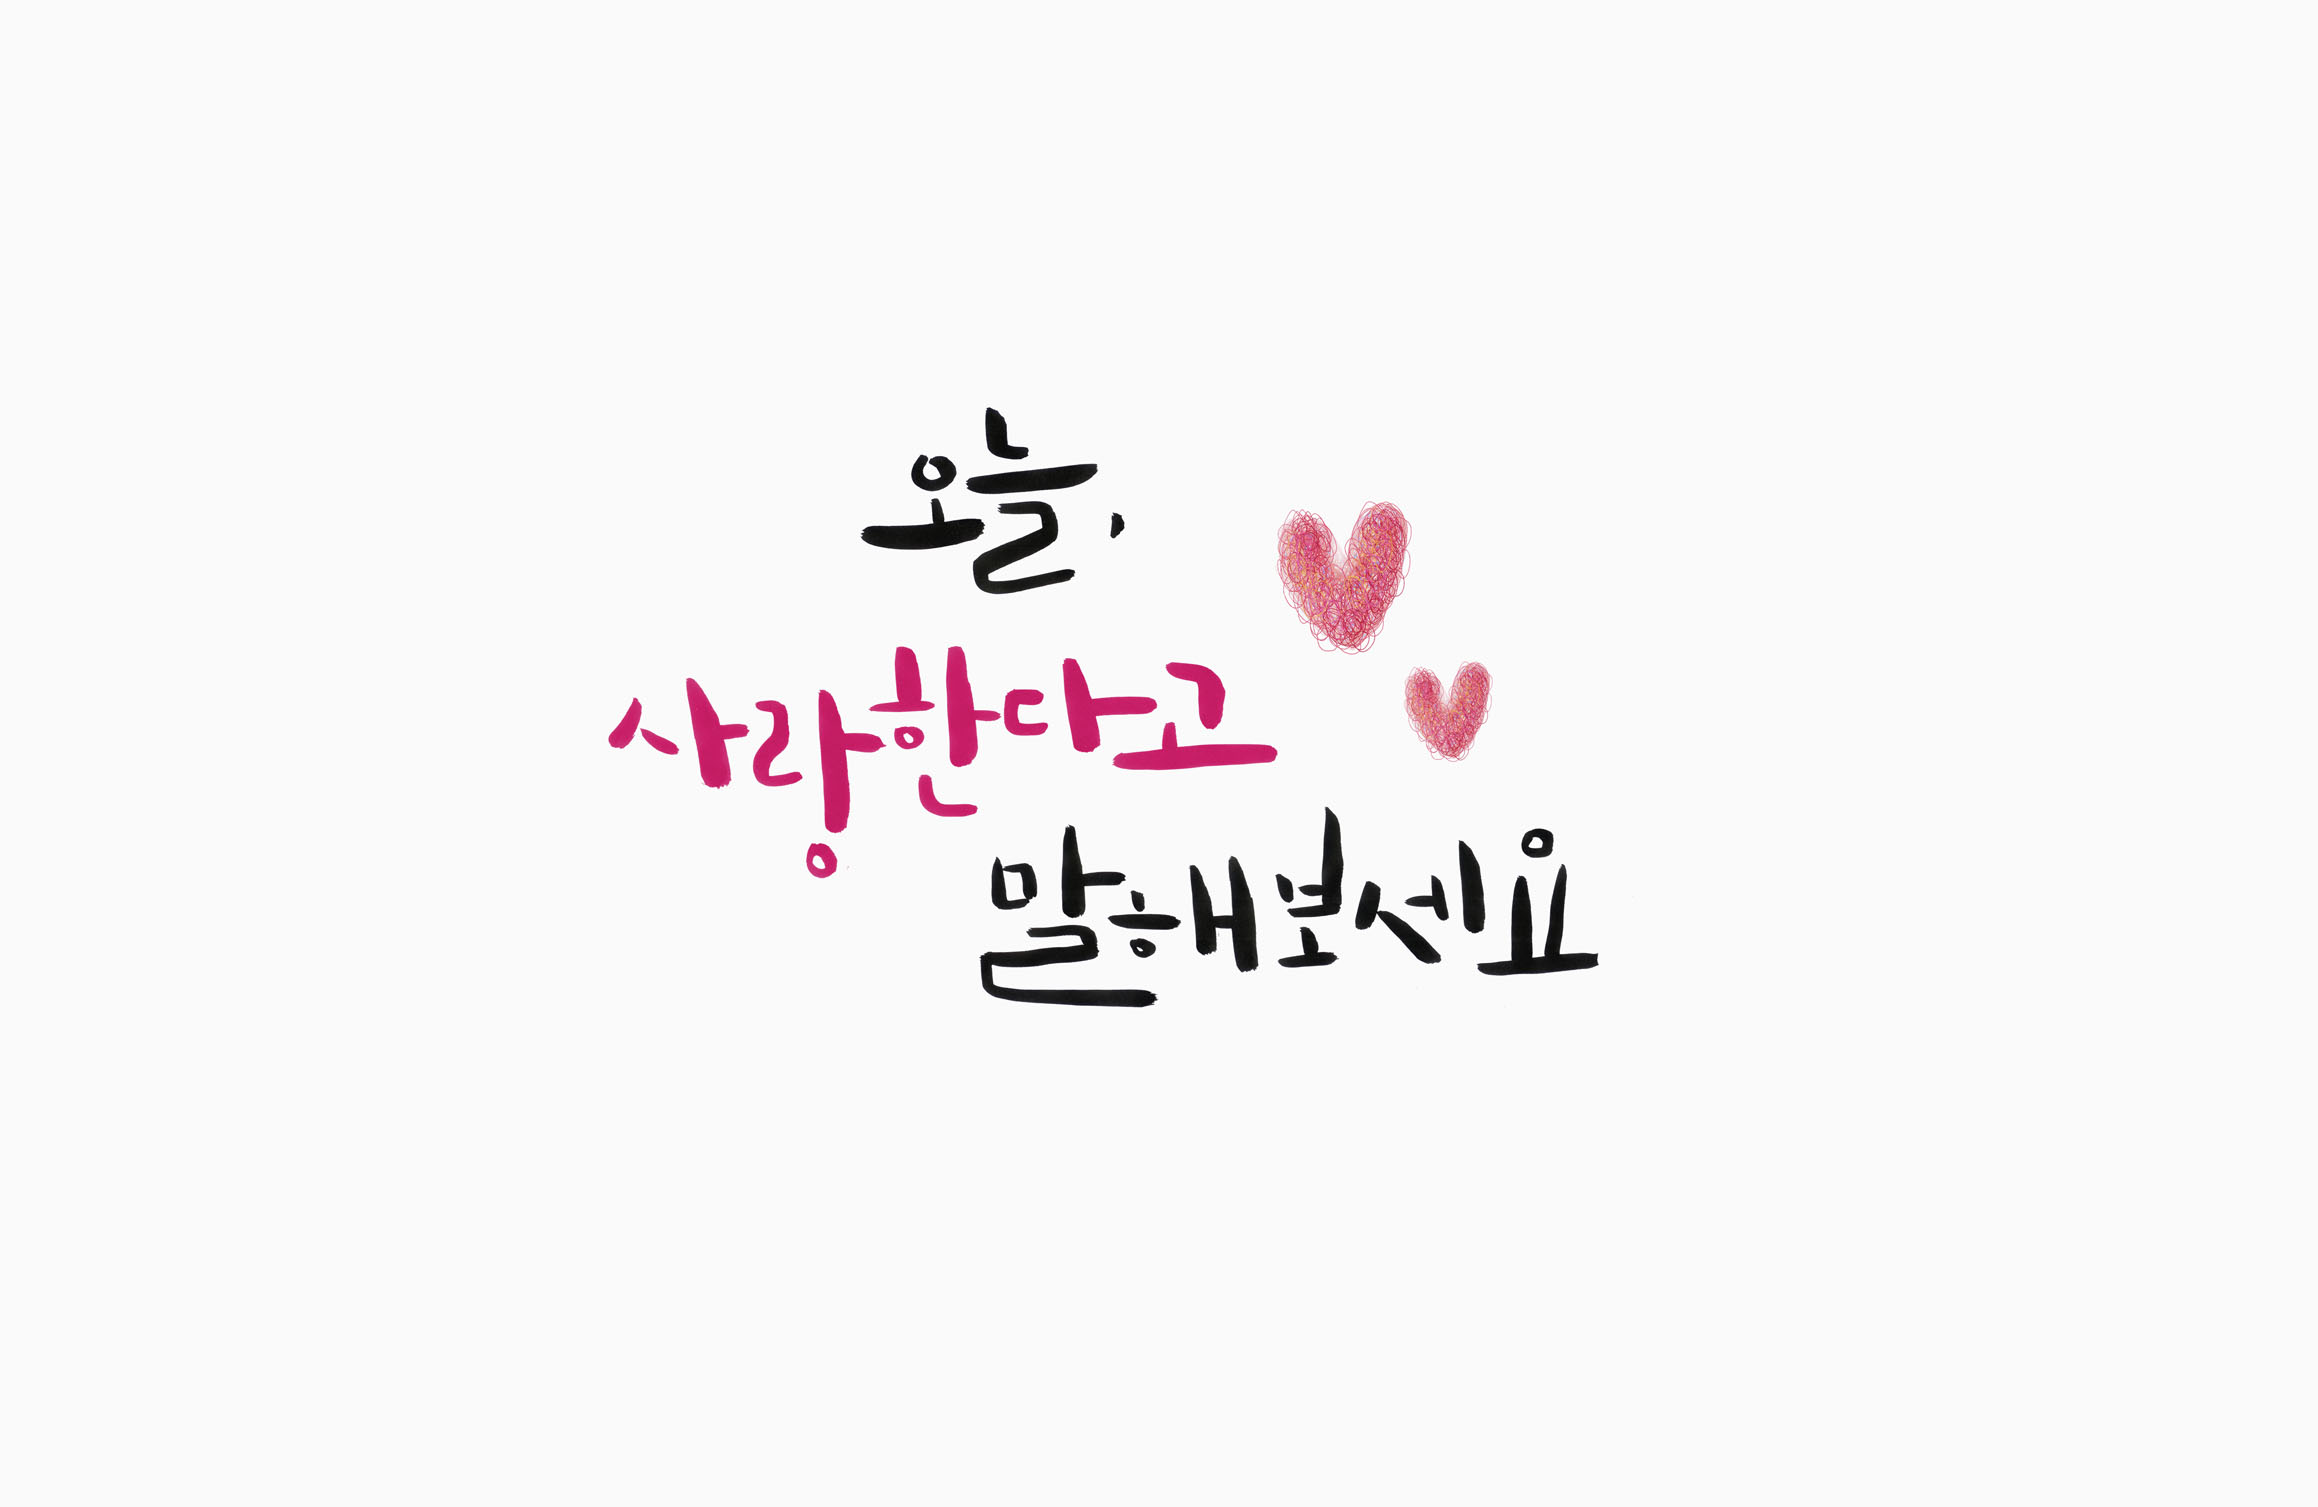 오늘,
사랑한다고
말해보세요